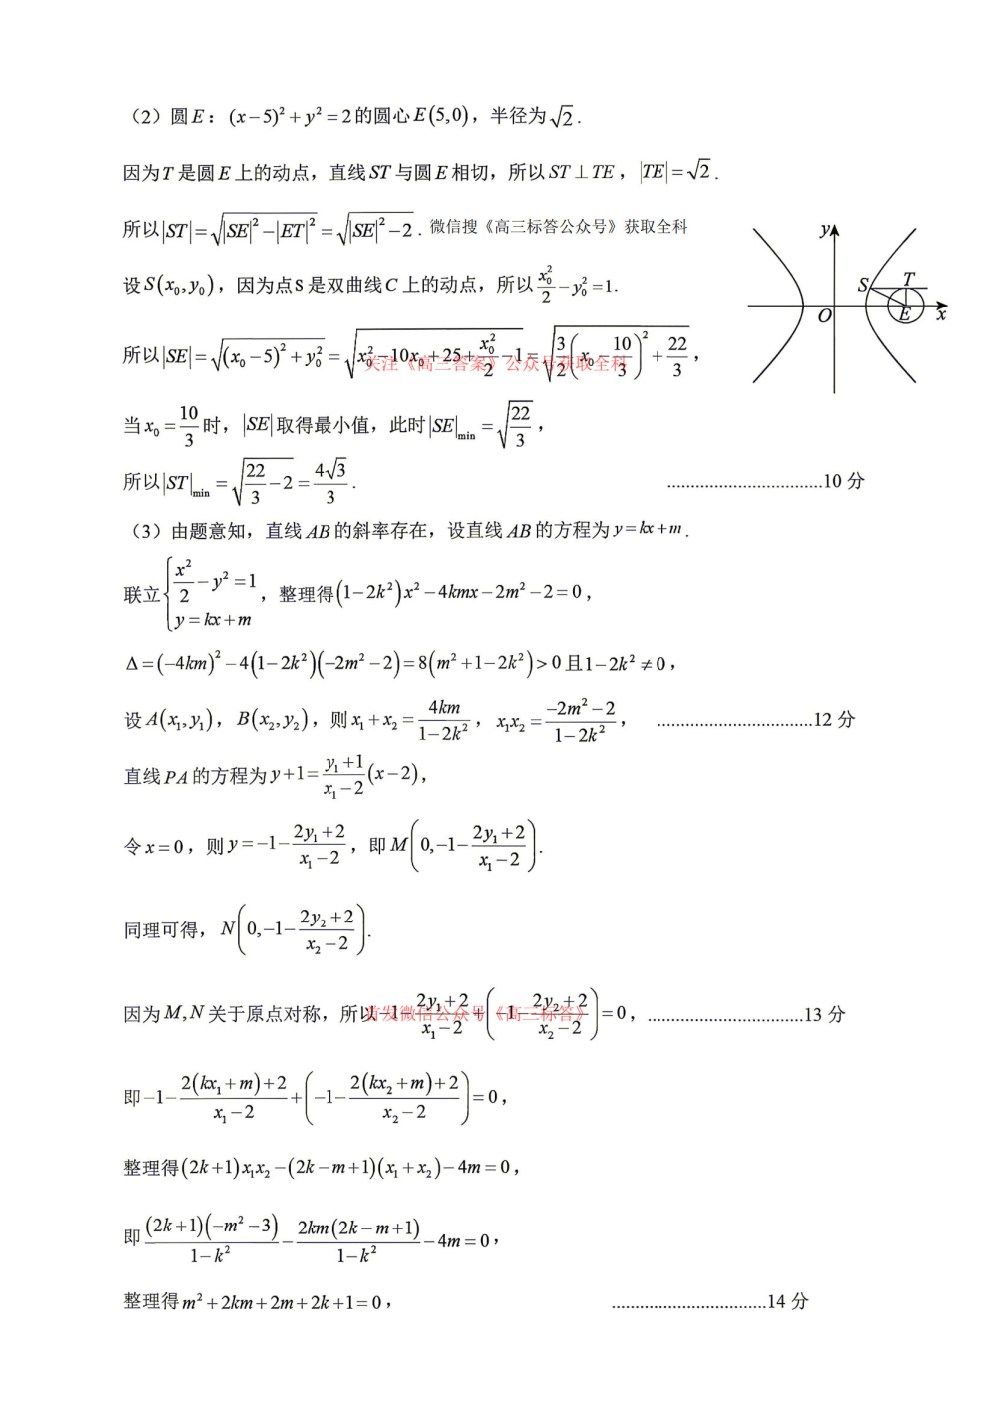 （2）圆E：(x−5)²+y²=2的圆心E(5,0)，半径为√2.
因为T是圆E上的动点，直线ST与圆E相切，所以ST⊥TE，|TE|=√2.
所以|ST|=√(|SE|²−|ET|²)=√(|SE|²−2). 微信搜《高三标答公众号》获取全科
设S(x₀,y₀)，因为点S是双曲线C上的动点，所以x₀²/2−y₀²=1.
所以|SE|=√((x₀−5)²+y₀²)=√(x₀²−10x₀+25+x₀²/2−1)=√(3/2(x₀−10/3)²+22/3)，
关注《高三答案》公众号获取全科
当x₀=10/3时，|SE|取得最小值，此时|SE|min=√(22/3)，
所以|ST|min=√(22/3−2)=4√3/3. ................................10分
y
S
T
O
E
x
（3）由题意知，直线AB的斜率存在，设直线AB的方程为y=kx+m.
联立{x²/2−y²=1, y=kx+m，整理得(1−2k²)x²−4kmx−2m²−2=0，
Δ=(−4km)²−4(1−2k²)(−2m²−2)=8(m²+1−2k²)>0且1−2k²≠0，
设A(x₁,y₁)，B(x₂,y₂)，则x₁+x₂=4km/(1−2k²)，x₁x₂=(−2m²−2)/(1−2k²)， ................................12分
直线PA的方程为y+1=(y₁+1)/(x₁−2)(x−2)，
令x=0，则y=−1−(2y₁+2)/(x₁−2)，即M(0,−1−(2y₁+2)/(x₁−2)).
同理可得，N(0,−1−(2y₂+2)/(x₂−2)).
因为M,N关于原点对称，所以−1−(2y₁+2)/(x₁−2)+(−1−(2y₂+2)/(x₂−2))=0，................................13分
首发微信公众号《高三标答》
即−1−(2(kx₁+m)+2)/(x₁−2)+(−1−(2(kx₂+m)+2)/(x₂−2))=0，
整理得(2k+1)x₁x₂−(2k−m+1)(x₁+x₂)−4m=0，
即(2k+1)(−m²−3)/(1−k²)−2km(2k−m+1)/(1−k²)−4m=0，
整理得m²+2km+2m+2k+1=0， ................................14分